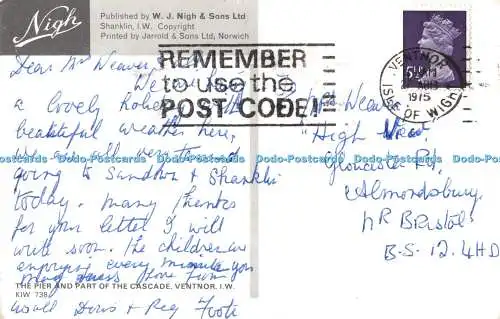 Nigh
Published by W. J. Nigh & Sons Ltd
Shanklin, I.W. Copyright
Printed by Jarrold & Sons Ltd, Norwich
REMEMBER
to use the
POST CODE!
VENTNOR
1975
ISLE OF WIGHT
Dear Mr Weaver,
We
a lovely holiday
beautiful weather here,
we are all very
going to Sandown & Shanklin
today. Many thanks
for your letter I will
write soon. The children are
enjoying every minute
love from
Doris & Reg Foote
Weaver
"High
Gloucester Rd,
Almondsbury.
Nr Bristol
B.S. 12. 4HD
Dodo-Postcards Dodo-Postcards Dodo-Postcards Dodo-Postcards
THE PIER AND PART OF THE CASCADE. VENTNOR. I.W.
KIW 738